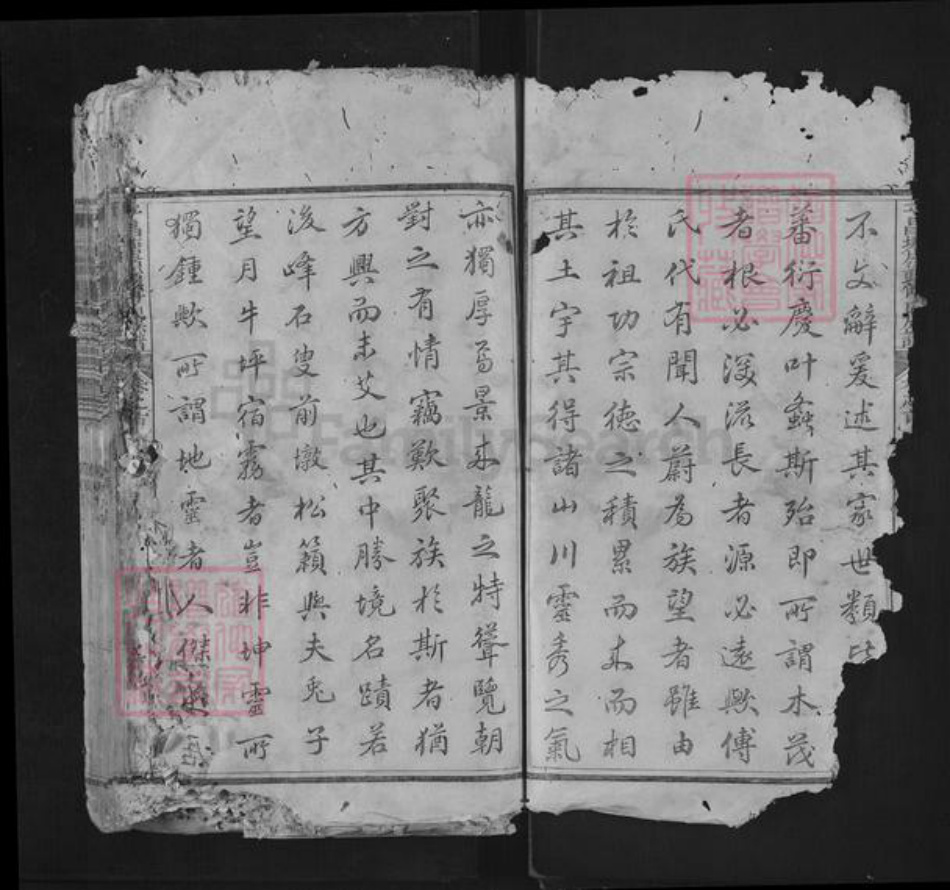 不文辭爰述其家世類比
蕃衍慶叶螽斯殆即所謂木茂
者根必深流長者源必遠歟傳
氏代有聞人蔚為族望者雖由
於祖功宗德之積累而來而相
其土宇其得諸山川靈秀之氣
亦獨厚焉景來龍之特聳覽朝
對之有情竊歎聚族於斯者猶
方興而未艾也其中勝境名蹟若
後峰石叟前墩松籟與夫兎子
望月牛坪宿霧者豈非坤靈所
獨鍾歟所謂地靈者人傑
FamilySearch